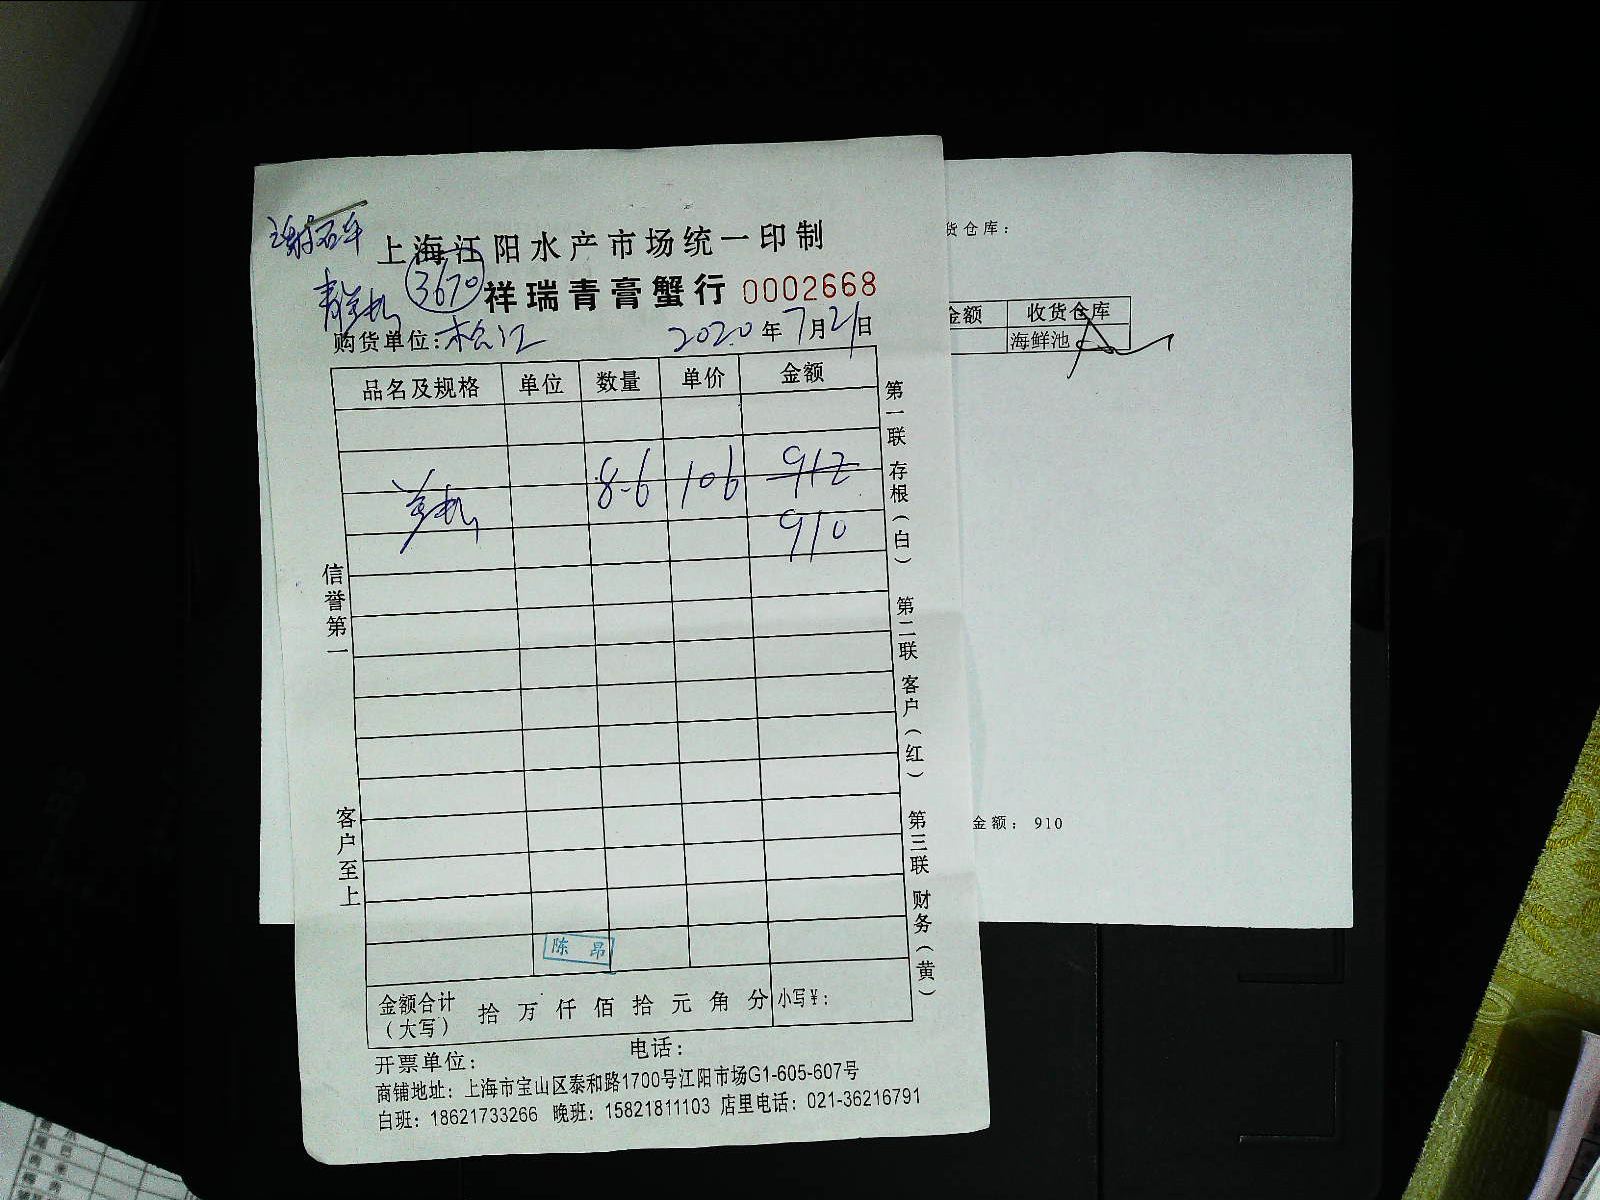 上海江阳水产市场统一印制
3670
祥瑞青膏蟹行 0002668
购货单位: 松江 2020年7月21日
品名及规格 单位 数量 单价 金额
8.6 106 912
910
信誉第一
客户至上
第一联 存根(白) 第二联 客户(红) 第三联 财务(黄)
陈昂
金额合计(大写) 拾万仟佰拾元角分 小写¥:
开票单位: 电话:
商铺地址: 上海市宝山区泰和路1700号江阳市场G1-605-607号
白班: 18621733266 晚班: 15821811103 店里电话: 021-36216791
货仓库:
金额 收货仓库
海鲜池
金额: 910